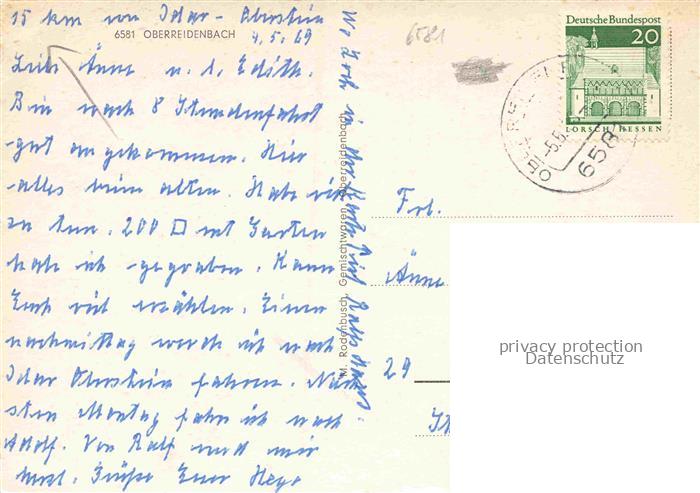 15 km von Idar-Oberstein
6581 OBERREIDENBACH
4.5.69
Liebe Änne u. l. Edith.
Bin nach 8 Stundenfahrt
gut angekommen. Hier
alles beim alten. Habe viel
zu tun. 200 □ mt Garten
habe ich gegraben. Kann
Euch viel erzählen. Einen
nachmittag werde ich nach
Idar Oberstein fahren. Näch
sten Montag fahr ich nach
Adolf. Von Ralf und mir
herzl. Grüße Eure
M. Rodenbusch, Gemischtwaren, Oberreidenbach
6581
Deutsche Bundespost
20
LORSCH/HESSEN
658
Frl.
Änne
29
privacy protection
Datenschutz